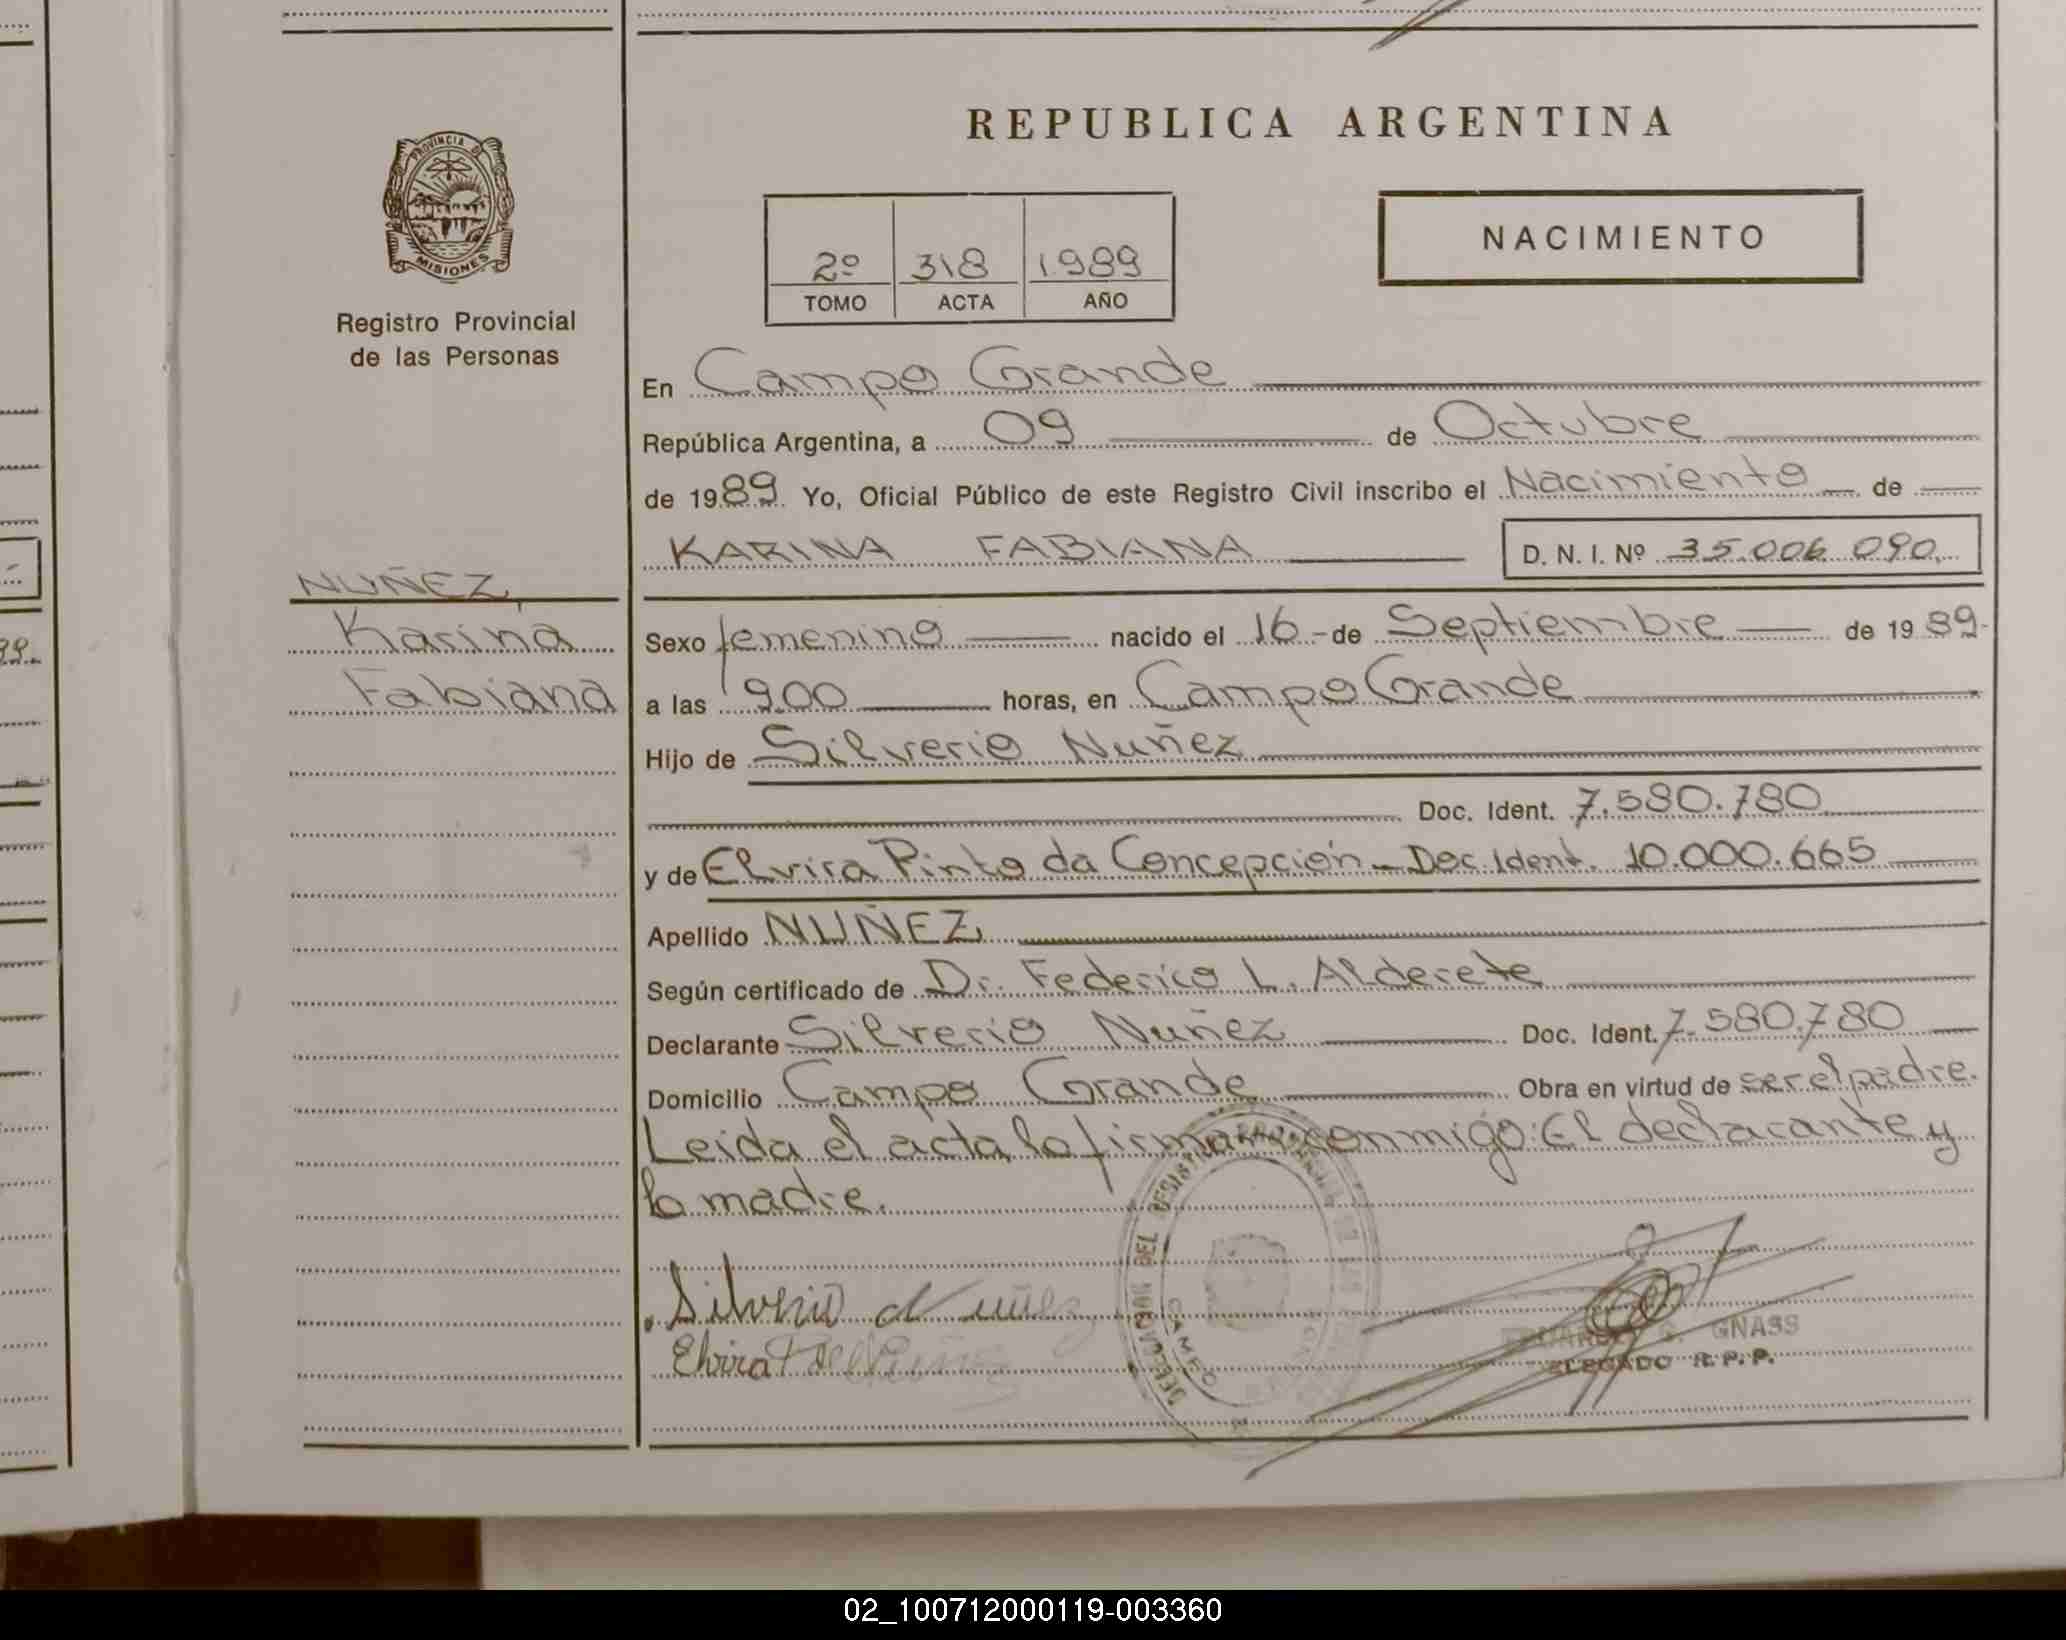 PROVINCIA DE
MISIONES
Registro Provincial
de las Personas
NUÑEZ,
Karina
Fabiana
REPUBLICA ARGENTINA
2º 318 1989
TOMO ACTA AÑO
NACIMIENTO
En Campo Grande
República Argentina, a 09 de Octubre
de 1989. Yo, Oficial Público de este Registro Civil inscribo el Nacimiento de
KARINA FABIANA D. N. I. Nº 35.006.090.
Sexo femenino nacido el 16 - de Septiembre de 1989-
a las 9.00 horas, en Campo Grande
Hijo de Silverio Nuñez
Doc. Ident. 7.580.780
y de Elvira Pinto da Concepción - Doc. Ident. 10.000.665
Apellido NUÑEZ
Según certificado de Dr. Federico L. Alderete
Declarante Silverio Nuñez Doc. Ident. 7.580.780
Domicilio Campo Grande Obra en virtud de ser el padre.
Leida el acta la firman conmigo: El declarante y
la madre.
Silverio Nuñez
Elvira
DELEGACION DEL REGISTRO PROVINCIAL DE LAS
CAMPO
EDUARDO G. GNASS
DELEGADO R.P.P.
02_100712000119-003360